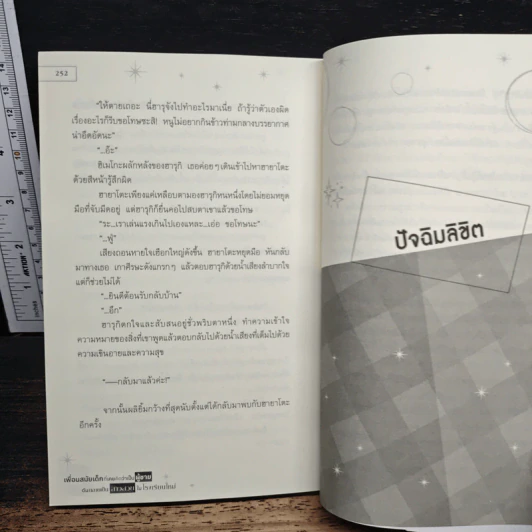 252
"ให้ตายเถอะ นี่ฮารุจังไปทำอะไรมาเนี่ย ถ้ารู้ว่าตัวเองผิด
เรื่องอะไรก็รีบขอโทษซะสิ! หนูไม่อยากกินข้าวท่ามกลางบรรยากาศ
น่าอึดอัดนะ"
"...อ๊ะ"
ฮิเมโกะผลักหลังของฮารุกิ เธอค่อยๆ เดินเข้าไปหาฮายาโตะ
ด้วยสีหน้ารู้สึกผิด
ฮายาโตะเพียงแค่เหลือบตามองฮารุกิหนหนึ่งโดยไม่ยอมหยุด
มือที่จับมีดอยู่ แต่ฮารุกิก็ยื่นคอไปสบตาเขาแล้วขอโทษ
"ระ...เราเล่นแรงเกินไปเองแหละ...เอ่อ ขอโทษนะ"
"...ฟู่"
เสียงถอนหายใจเฮือกใหญ่ดังขึ้น ฮายาโตะหยุดมือ หันกลับ
มาทางเธอ เกาศีรษะดังแกรกๆ แล้วตอบฮารุกิด้วยน้ำเสียงลำบากใจ
แต่ก็ช่วยไม่ได้
"...ยินดีต้อนรับกลับบ้าน"
"...อึก"
ฮารุกิตกใจและสับสนอยู่ชั่วพริบตาหนึ่ง ทำความเข้าใจ
ความหมายของสิ่งที่เขาพูดแล้วตอบกลับไปด้วยน้ำเสียงที่เต็มไปด้วย
ความเขินอายและความสุข
"──กลับมาแล้วค่ะ!"
จากนั้นผลิยิ้มกว้างที่สุดนับตั้งแต่ได้กลับมาพบกับฮายาโตะ
อีกครั้ง
เพื่อนสมัยเด็ก
ปัจฉิมลิขิต